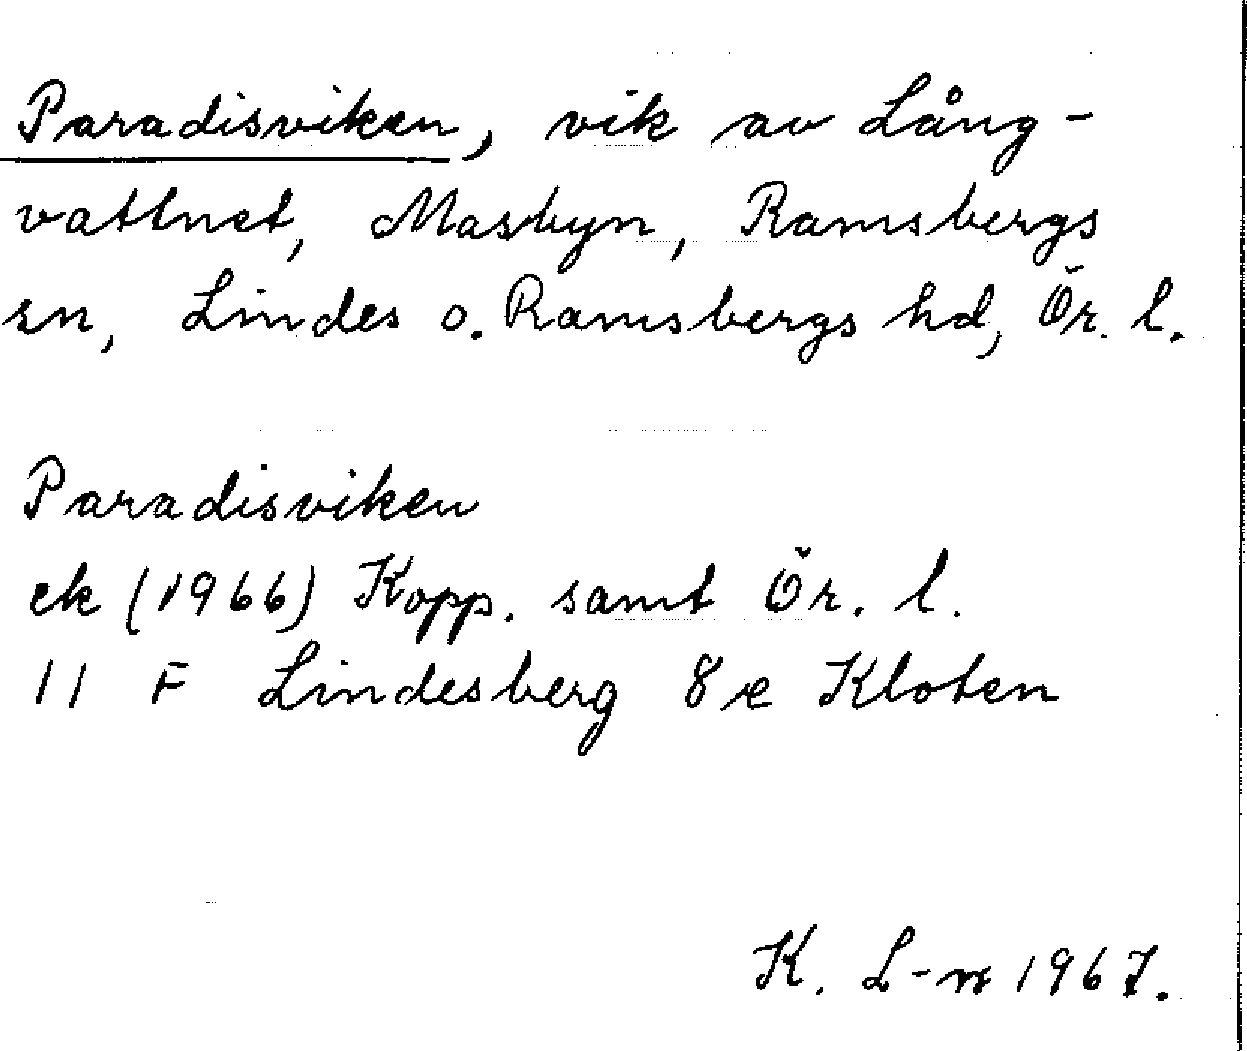 Paradisviken, vik av Lång-
vattnet, Masbyn, Ramsbergs
sn, Lindes o. Ramsbergs hd, Ör. l.
Paradisviken
ek (1966) Kopp. samt Ör. l.
11 F Lindesberg 8 e Kloten
K. L-n 1967.